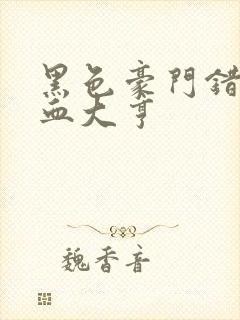 黑色豪門錯
血大亨
魏香音